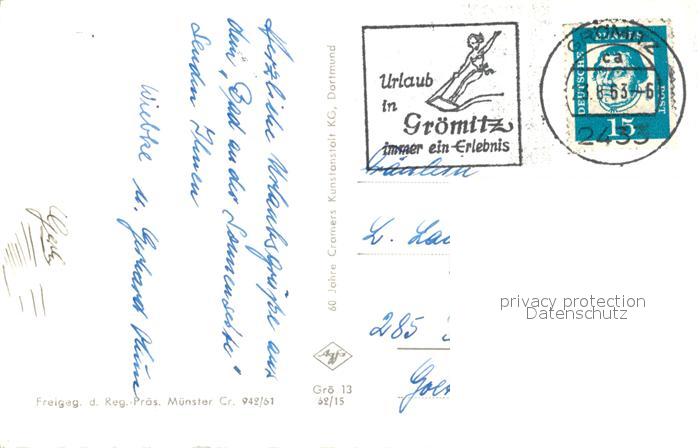 Herzliche Urlaubsgrüße aus
dem "Bad an der Sonnenseite"
senden Ihnen
Wiebke u. Gerhard
60 Jahre Cramers Kunstanstalt KG, Dortmund
Freigeg. d. Reg.-Präs. Münster Cr. 942/61
Grö 13
62/15
Urlaub
in
Grömitz
immer ein Erlebnis
GRÖMITZ
ca
8.63.-6
2433
DEUTSCHE
POST
15
Fräulein
L.
285
privacy protection
Datenschutz